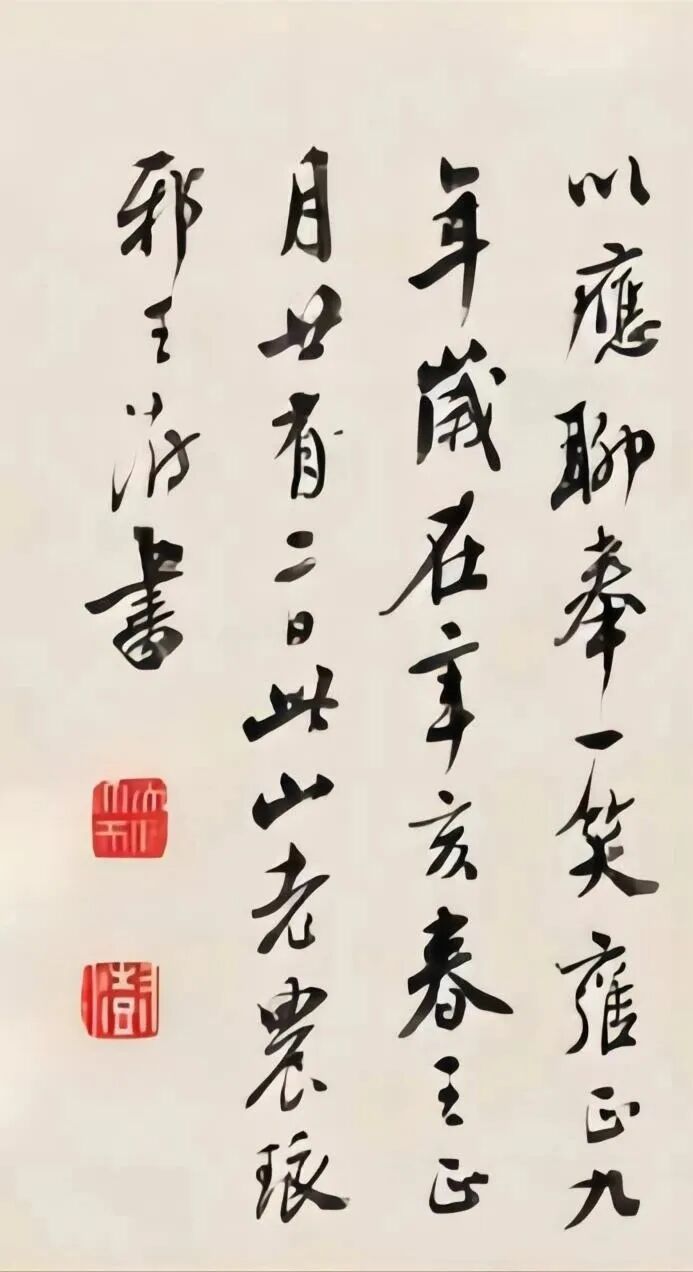 以應聊奉一笑雍正九
年歲在辛亥春王正
月廿有二日此山老農琅
邪王澍書